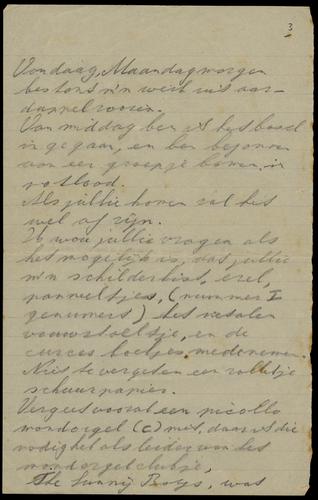 3
Vandaag, Maandagmorgen
bestond m'n werk uit aar-
dappelrooien.
Van middag ben ik het bosch
in gegaan, en ben begonnen
aan een groepje bomen in
potlood.
Als jullie komen zal het
wel af zijn.
Ik wou jullie vragen als
het mogelijk is, dat jullie
m'n schilderkist, ezel,
paneeltjes, (nummer I
genummerd) het metalen
vouwstoeltje, en de
boekjes medenemen.
Niet te vergeten een rolletje
schuurpapier.
Vergeet vooral een picollo
mondorgel (C) niet, daar ik die
nodig heb als leider van het
mondorgelclubje,
The Sunny Boys, was